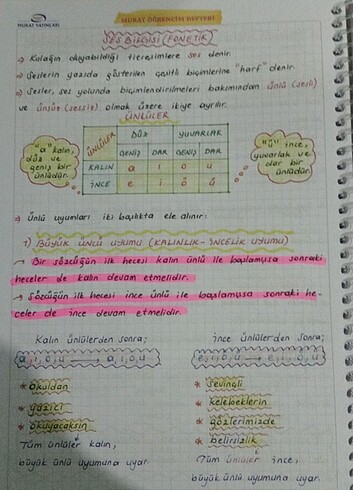 MURAT YAYINLARI
MURAT ÖĞRENCİM DEFTERİ
SES BİLGİSİ (FONETİK)
→ Kulağın duyabildiği titreşimlere ses denir.
→ Seslerin yazıda gösterilen çeşitli biçimlerine "harf" denir.
→ Sesler, ses yolunda biçimlendirilmeleri bakımından ünlü (sesli)
ve ünsüz (sessiz) olmak üzere ikiye ayrılır.
ÜNLÜLER
ÜNLÜLER DÜZ YUVARLAK
GENİŞ DAR GENİŞ DAR
KALIN a ı o u
İNCE e i ö ü
"a" kalın,
düz ve
geniş bir
ünlüdür.
"ü" ince,
yuvarlak ve
dar bir
ünlüdür.
→ Ünlü uyumları iki başlıkta ele alınır:
1) BÜYÜK ÜNLÜ UYUMU (KALINLIK-İNCELİK UYUMU)
→ Bir sözcüğün ilk hecesi kalın ünlü ile başlamışsa sonraki
heceler de kalın devam etmelidir.
→ Sözcüğün ilk hecesi ince ünlü ile başlamışsa sonraki he-
celer de ince devam etmelidir.
Kalın ünlülerden sonra;
a, ı, o, u → a, ı, o, u
* okuldan
* yazıcı
* okuyacaksın
Tüm ünlüler kalın,
büyük ünlü uyumuna uyar.
İnce ünlülerden sonra;
e, i, ö, ü → e, i, ö, ü
* sevinçli
* kelebeklerin
* gözlerimizde
* belirsizlik
Tüm ünlüler ince,
büyük ünlü uyumuna uyar.